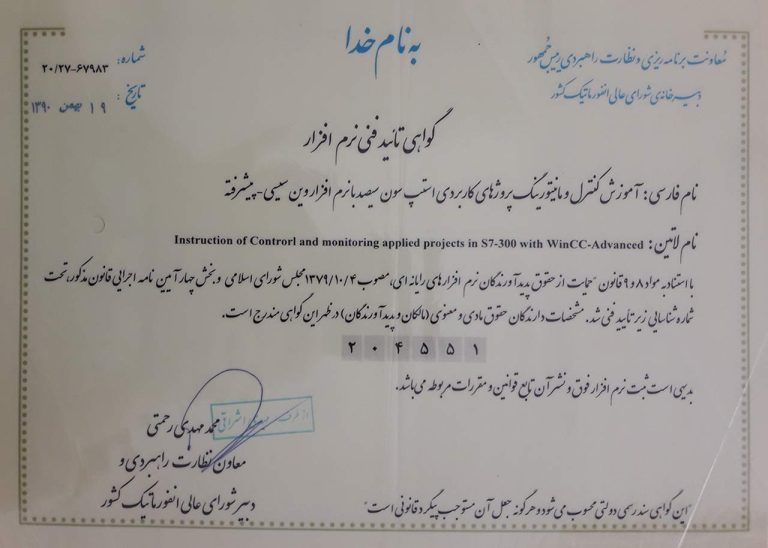 به نام خدا
معاونت برنامه ریزی و نظارت راهبردی رییس جمهور
دبیرخانه‌ی شورای عالی انفورماتیک کشور
شماره: ۲۰/۲۷-۶۷۹۸۳
تاریخ: ۱۹ بهمن ۱۳۹۰
گواهی تائید فنی نرم افزار
نام فارسی: آموزش کنترل و مانیتورینگ پروژهای کاربردی استپ سون سیصد با نرم افزار وین سیسی-پیشرفته
نام لاتین: Instruction of Controrl and monitoring applied projects in S7-300 with WinCC-Advanced
با استناد به مواد ۸ و ۹ قانون "حمایت از حقوق پدیدآورندگان نرم افزارهای رایانه ای، مصوب ۱۳۷۹/۱۰/۴ مجلس شورای اسلامی و بخش چهار آیین نامه اجرایی قانون مذکور، تحت
شماره شناسایی زیر تأیید فنی شد. مشخصات دارندگان حقوق مادی و معنوی (مالکان و پدیدآورندگان) در ظهر این گواهی مندرج است.
۲۰۴۵۵۱
بدیهی است ثبت نرم افزار فوق و نشر آن تابع قوانین و مقررات مربوطه می باشد.
از طرف
محمد مهدی رحمتی
معاون نظارت راهبردی و
دبیر شورای عالی انفورماتیک کشور
"این گواهی سند رسمی دولتی محسوب می شود و هرگونه جعل آن مستوجب پیگرد قانونی است"